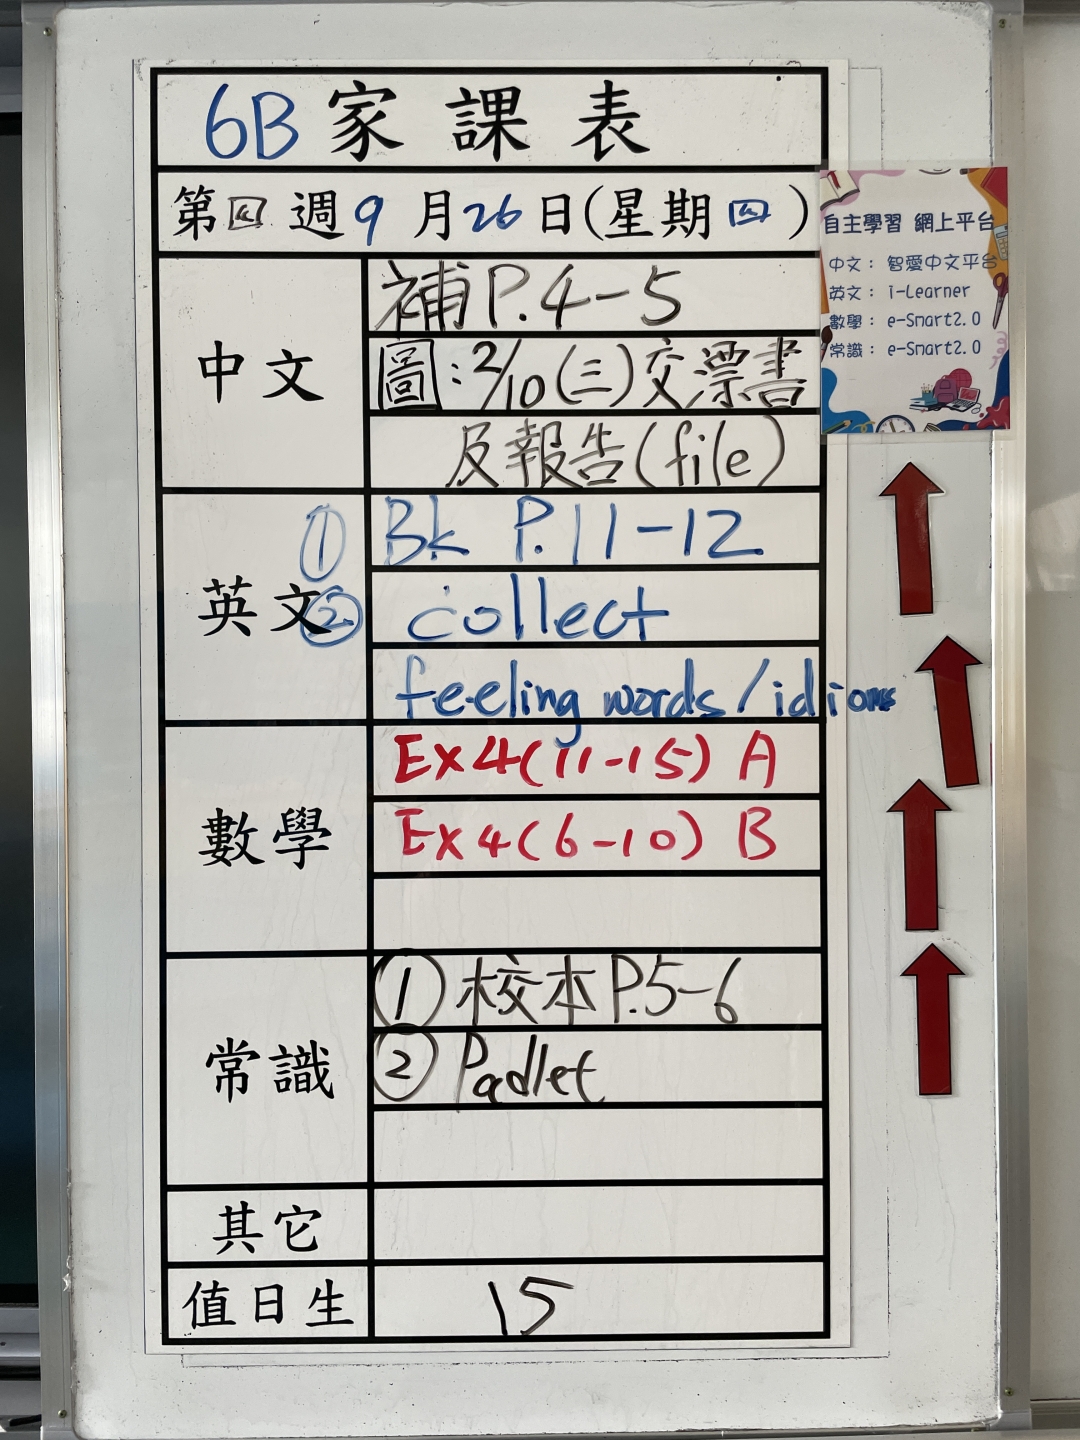 6B 家課表
第四週 9月26日(星期四)
自主學習 網上平台
中文： 智愛中文平台
英文： i-Learner
數學： e-Smart2.0
常識： e-Smart2.0
中文
補P.4-5
圖:2/10(三)交漂書
及報告(file)
英文
① Bk P.11-12
② collect
feeling words/idioms
數學
Ex4(11-15) A
Ex4(6-10) B
常識
① 校本P.5-6
② Padlet
其它
值日生
15